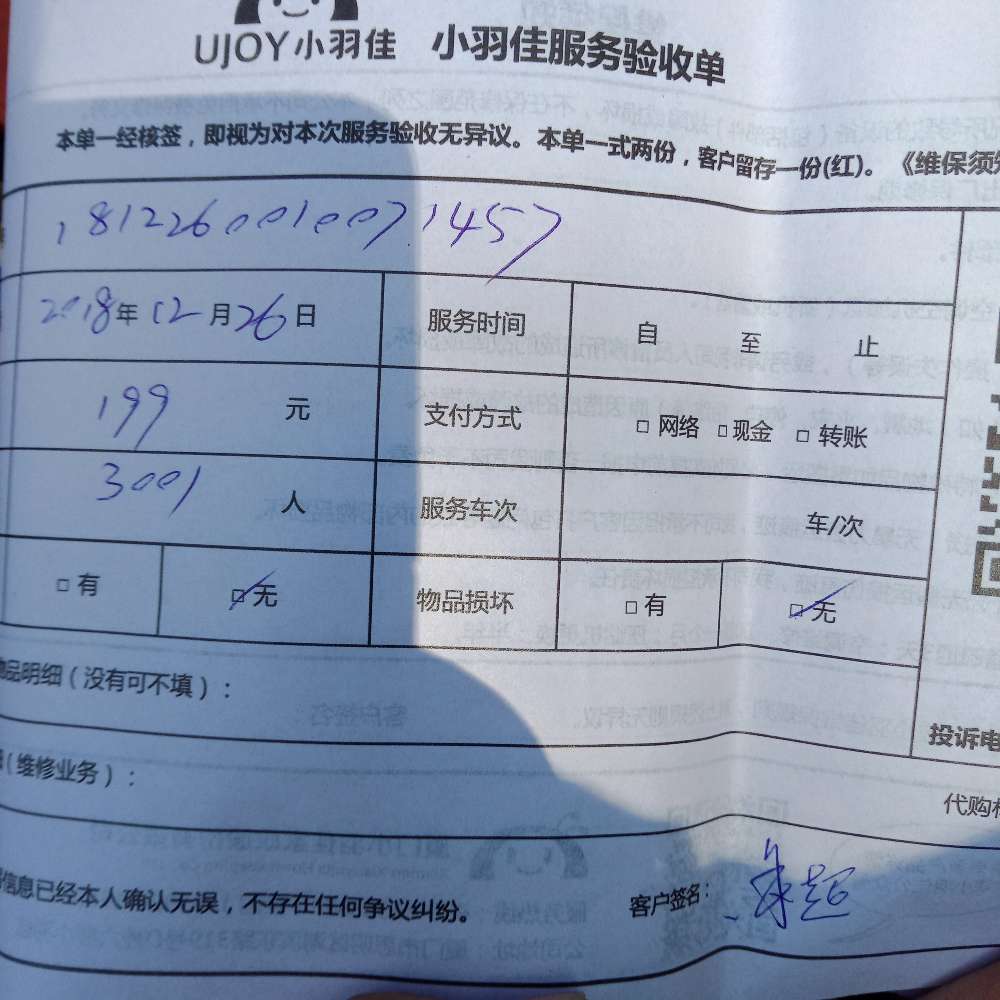 UJOY小羽佳 小羽佳服务验收单
本单一经核签，即视为对本次服务验收无异议。本单一式两份，客户留存一份(红)。《维保须知
1812260010071457
2018年12月26日 服务时间 自 至 止
199 元 支付方式 □ 网络 □ 现金 □ 转账
3001 人 服务车次 车/次
□ 有 □ 无 物品损坏 □ 有 □ 无
物品明细（没有可不填）：
（维修业务）：
投诉电
代购
信息已经本人确认无误，不存在任何争议纠纷。 客户签名：朱超